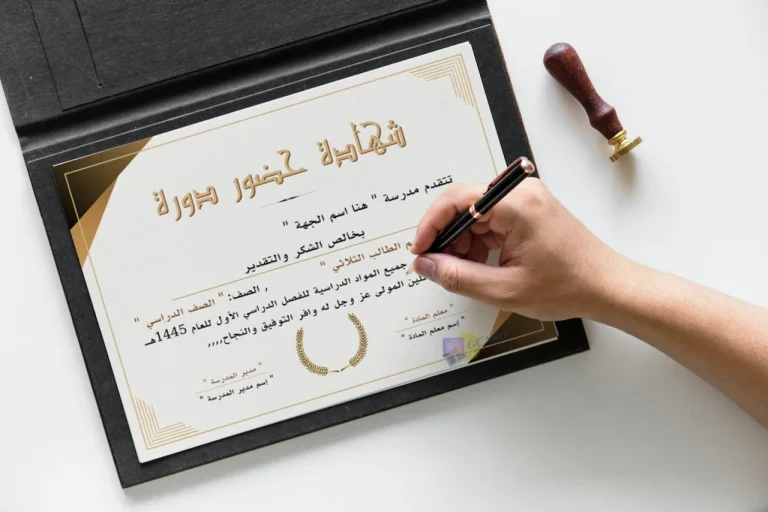 شهادة حضور دورة
تتقدم مدرسة " هنا اسم الجهة "
بخالص الشكر والتقدير
الطالب الثلاثي "
, الصف: " الصف الدراسي "
جميع المواد الدراسية للفصل الدراسي الأول للعام 1445هـ
المولى عز وجل له وافر التوفيق والنجاح,,,,
" معلم المادة "
" إسم معلم المادة "
" مدير المدرسة "
" إسم مدير المدرسة "